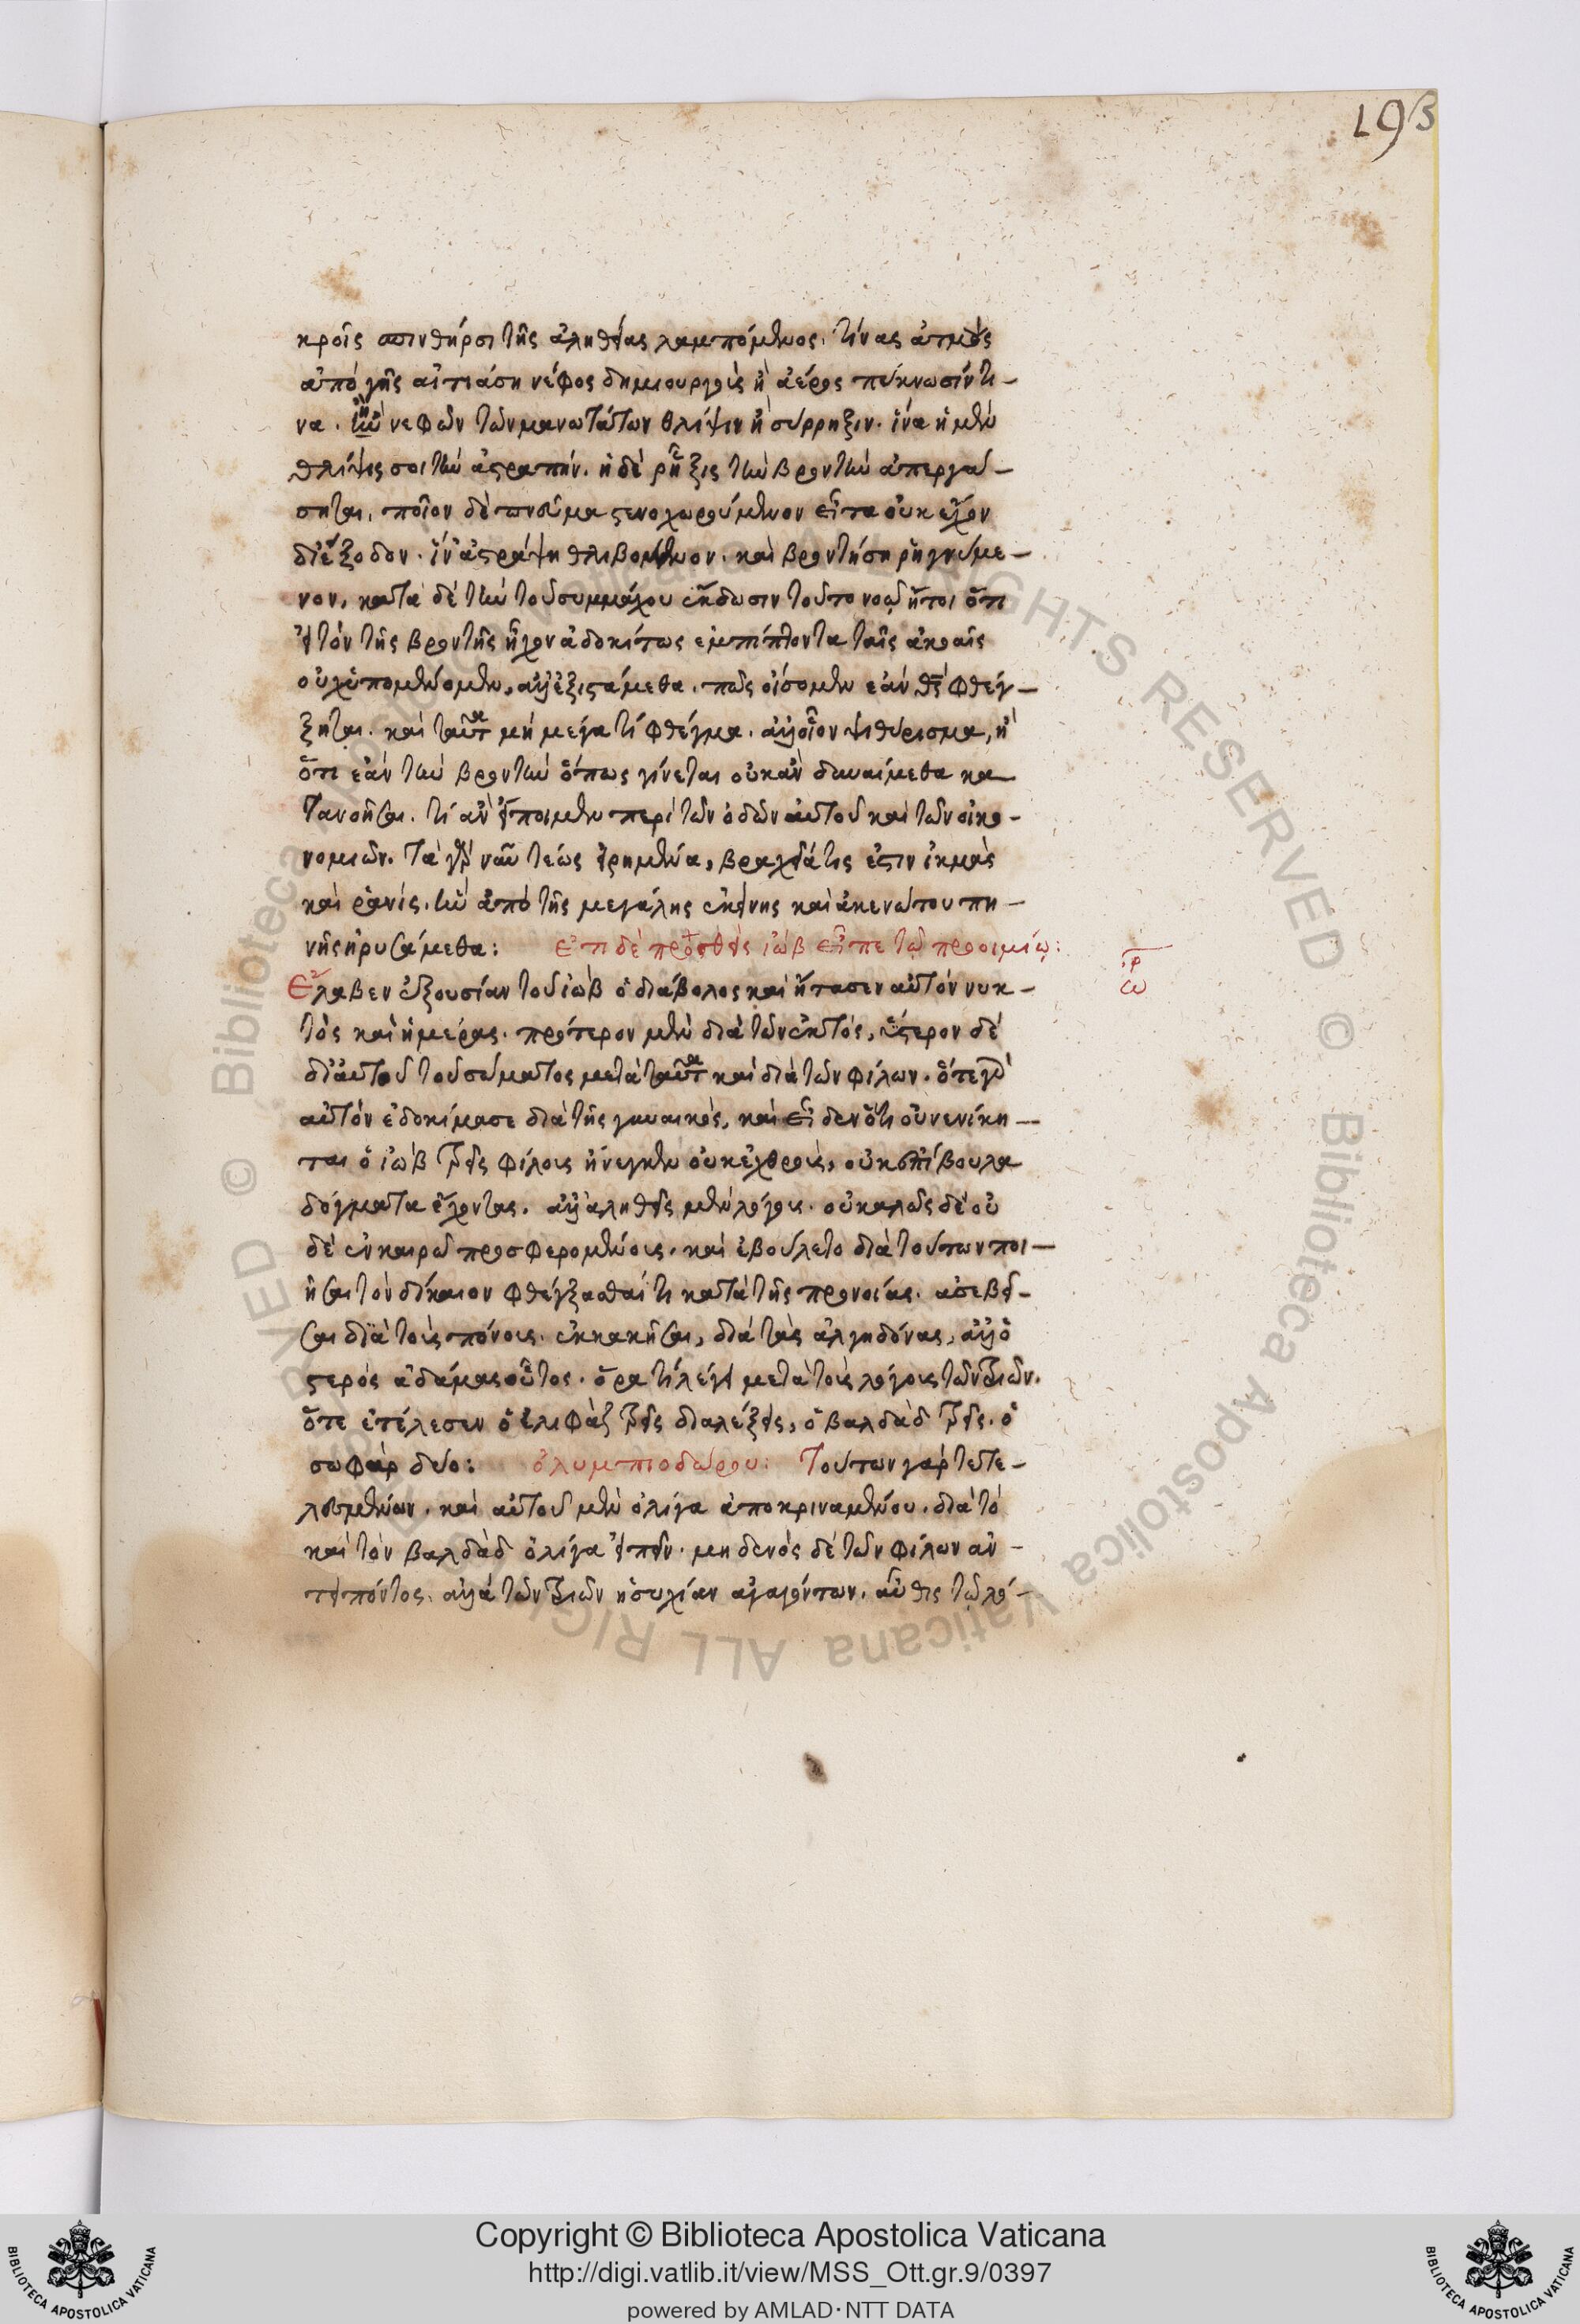 193
κροῖς σπινθῆρσι τῆς ἀληθείας λαμπόμενος. τίνας ἀτμοὺς
ἀπὸ γῆς αἰτιάση νέφος δημιουργοὺς ἢ ἀέρος πύκνωσίν τι-
να. ἢ νεφῶν τῶν μανωτάτων θλίψιν ἢ σύρρηξιν. ἵνα ἡ μὲν
θλίψις σοι τὴν ἀστραπήν. ἡ δὲ ῥῆξις τὴν βροντὴν ἀπεργά-
σηται. ποῖον δὲ πνεῦμα στενοχωρούμενον εἶτα οὐκ ἔχον
διέξοδον. ἵν' ἀστράψη θλιβόμενον. καὶ βροντήση ῥηγνύμε-
νον. κατὰ δὲ τὴν τοῦ συμμάχου ἔκδωσιν τοῦτο νοῶ ἤτοι ὅτι
εἰ τὸν τῆς βροντῆς ἦχον ἀδοκίτως ἐμπίπτοντα ταῖς ἀκοαῖς
οὐχ ὑπομένομεν, ἀλλ' ἐξιστάμεθα. πῶς οἴσομεν ἐὰν θς φθέγ-
ξηται. καὶ ταῦτα μὴ μέγα τί φθέγμα. ἀλλ' οἷον ψιθύρισμα, ἢ
ὅτι ἐὰν τὴν βροντὴν ὅπως γίνεται οὐκ ἂν δυναίμεθα κα
τανοῆσαι. τί ἂν εἴποιμεν περὶ τῶν ὁδῶν αὐτοῦ καὶ τῶν οἰκο-
νομιῶν. τὰ γὰρ νῦν τέως εἰρημένα, βραχεῖά τις ἐστιν ἰκμὰς
καὶ ῥανίς. ἣν ἀπὸ τῆς μεγάλης ἐκείνης καὶ ἀκενώτου πη-
γῆς ἠρυσάμεθα: ἔτι δὲ προσθεὶς ἰὼβ εἶπε τῷ προοιμίῳ:
Ἔλαβεν ἐξουσίαν τοῦ ἰὼβ ὁ διάβολος καὶ ἤτασεν αὐτὸν νυκ-
τὸς καὶ ἡμέρας. πρότερον μὲν διὰ τῶν ἐκτός, ὕστερον δὲ
δι' αὐτοῦ τοῦ σώματος μετὰ ταῦτα καὶ διὰ τῶν φίλων. ὅτε γὰρ
αὐτὸν ἐδοκίμασε διὰ τῆς γυναικὸς, καὶ εἶδεν ὅτι οὐ νενίκη-
ται ὁ ἰὼβ τρεῖς φίλους ἤνεγκεν οὐκ ἐχθροὺς, οὐκ ἐπίβουλα
δόγματα ἔχοντας. ἀλλ' ἀληθεῖς μὲν λόγους. οὐ καλῶς δὲ οὐ
δὲ ἐν καιρῶ προσφερομένους. καὶ ἐβούλετο διὰ τούτων ποι-
ῆσαι τὸν δίκαιον φθέγξασθαί τι κατὰ τῆς προνοίας. ἀσεβῆ-
σαι διὰ τοὺς πόνους. ἐκκακῆσαι, διὰ τὰς ἀλγηδόνας, ἀλλ' ὁ
στερὸς ἀδάμας οὗτος. ὅρα τί λέγει μετὰ τοὺς λόγους τῶν τριῶν.
ὅτε ἐτέλεσεν ὁ ἐλιφὰζ τρεῖς διαλέξεις, ὁ βαλδὰδ τρεῖς. ὁ
σωφὰρ δύο: ὀλυμπιοδώρου: Τούτων γὰρ τετε-
λεσμένων. καὶ αὐτοῦ μὲν ὀλίγα ἀποκριναμένου. διὰ τὸ
καὶ τὸν βαλδὰδ ὀλίγα εἰπεῖν. μηδενὸς δὲ τῶν φίλων ἀν-
τειπόντος. ἀλλὰ τῶν τριῶν ἡσυχίαν ἀγαγόντων. αὖθις τῷ λό-
Copyright © Biblioteca Apostolica Vaticana
http://digi.vatlib.it/view/MSS_Ott.gr.9/0397
powered by AMLAD·NTT DATA